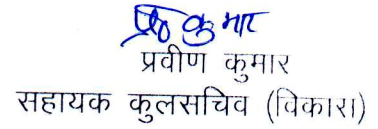 प्रवीण कुमार
सहायक कुलसचिव (विकास)